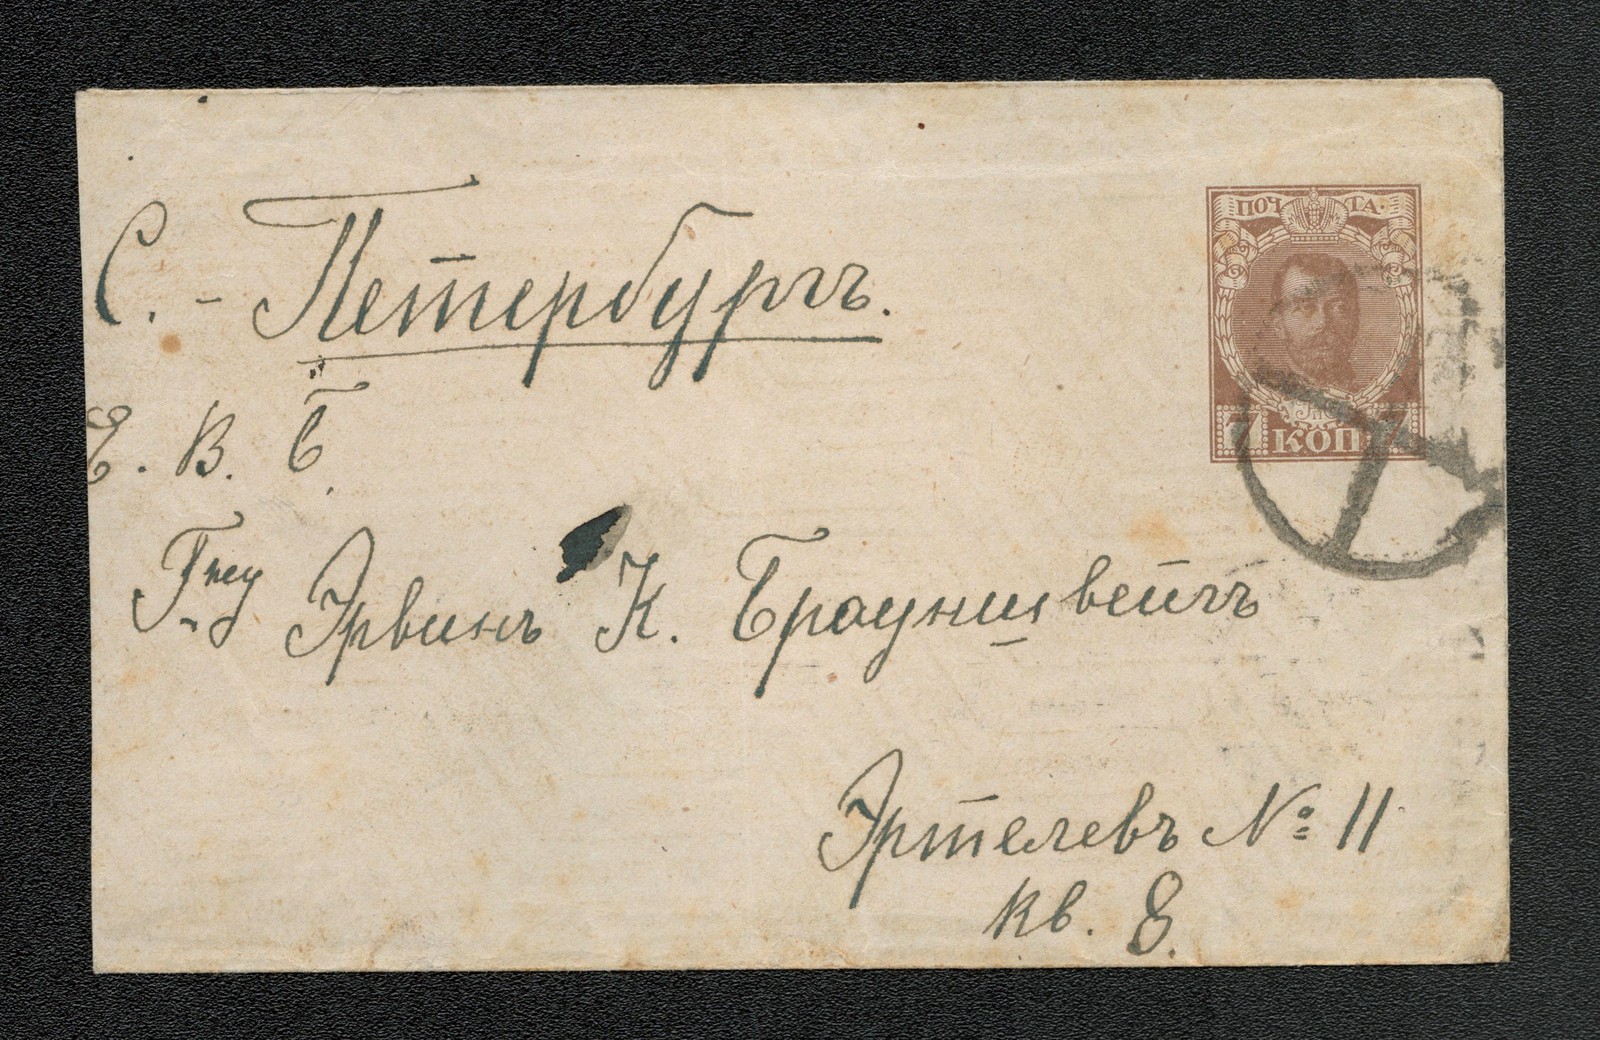 ПОЧТА.
7 КОП 7
С.-Петербургъ.
Е. В. Б.
Гну Эрвинъ К. Брауншвейгъ
Эртелевъ № 11
кв. 8.